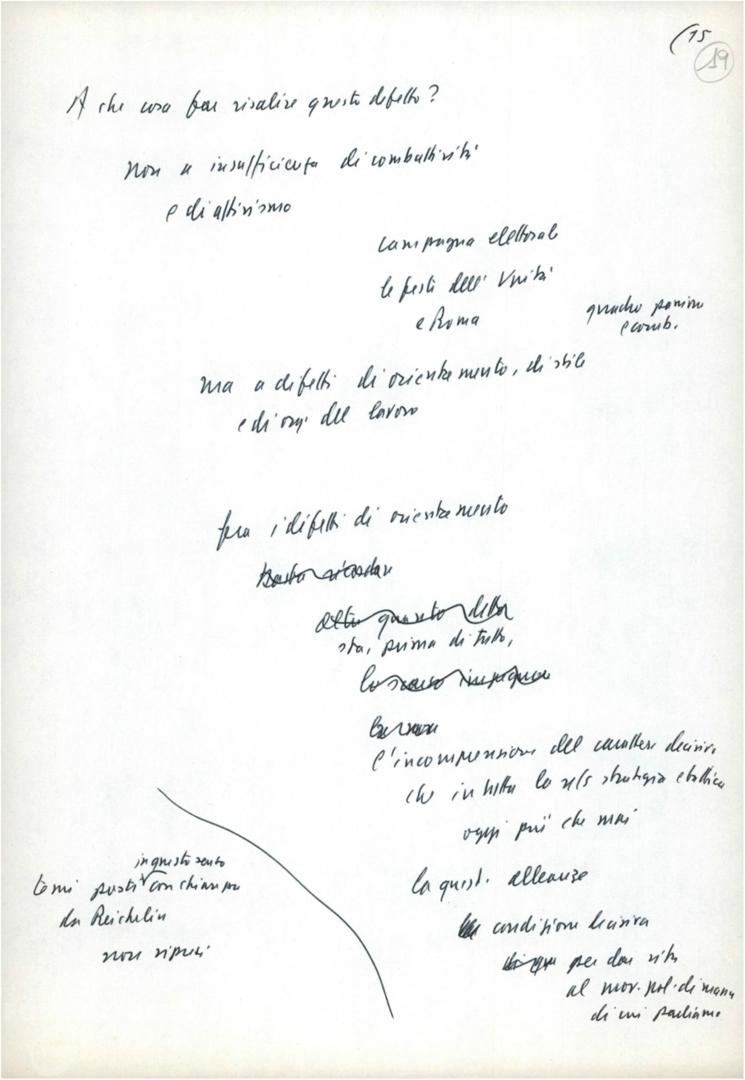 (15
19
A che cosa far risalire questo difetto?
non a insufficienza di combattività
e di attivismo
campagna elettorale
le feste dell' Unità
e Roma
quadro
e comb.
ma a difetti di orientamento, di stile
e di org. del lavoro
fra i difetti di orientamento
basta ricordare
oltre quanto detto
sta, prima di tutto,
lo scarso impegno
l'incomprensione del carattere decisivo
che in tutta la ns/ strategia e tattica
oggi più che mai
la quest. alleanze
condizione decisiva
per dar vita
al mov. pol. di massa
di cui parliamo
in questo senso
temi posti con chiarezza
da Reichlin
non ripresi